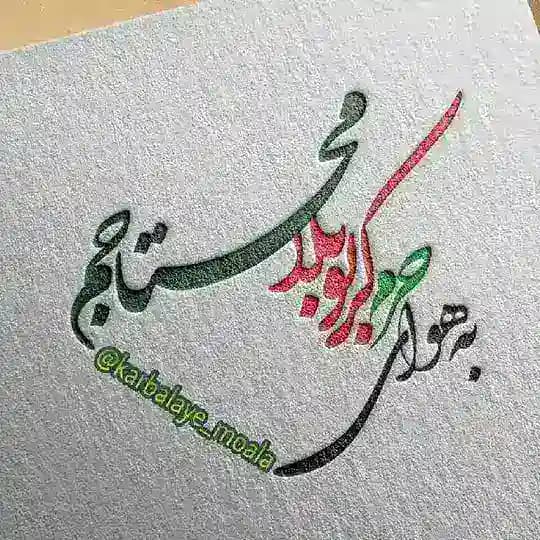 به هوای حرم کرب و بلا محتاجم
@karbalaye_moala